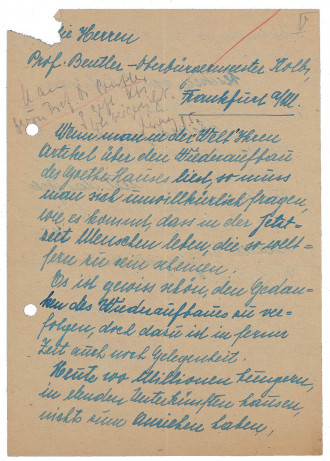 die Herren
Prof. Beutler - Oberbürgermeister Kolb,
Frankfurt a/M.
Wenn man in der "Welt" Ihren
Artikel über den Wiederaufbau
des Goethe Hauses liest, so muss
man sich unwillkürlich fragen,
wie es kommt, dass in der Jetzt-
zeit Menschen leben, die so welt-
fern zu sein scheinen.
Es ist gewiss schön, den Gedan-
ken des Wiederaufbaues zu ver-
folgen, doch dazu ist in ferner
Zeit auch noch Gelegenheit.
Heute wo Millionen hungern,
in elenden Unterkünften hausen,
nichts zum Anziehen haben,